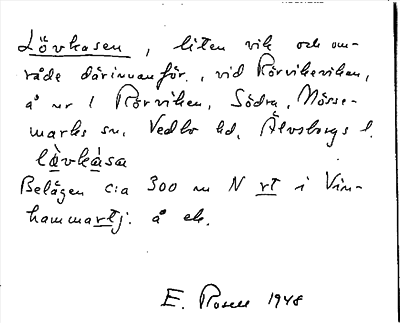 Lövkasen, liten vik och om-
råde därinnanför, vid Rörviksviken,
å nr 1 Rörviken, Södra, Nösse-
marks sn, Vedbo hd, Älvsborgs l.
lò̤vkàsa
Belägen c:a 300 m N rt i Vin-
hammartj. å ek.
E. Rosell 1948